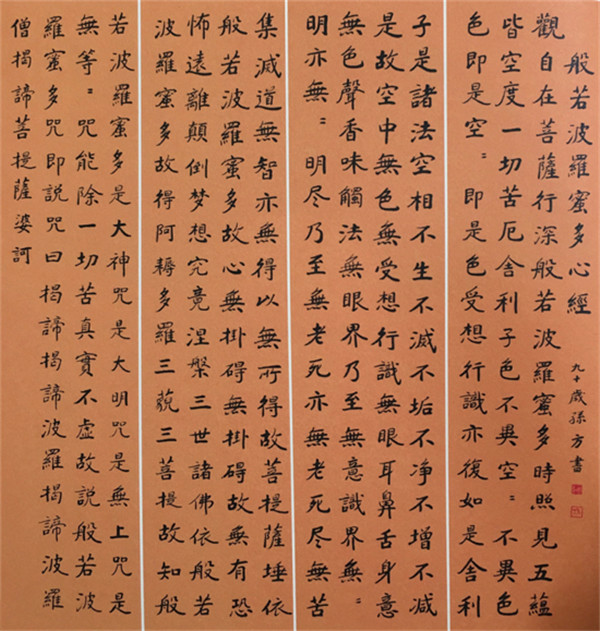 般若波羅蜜多心經
觀自在菩薩行深般若波羅蜜多時照見五蘊
皆空度一切苦厄舍利子色不異空〻不異色
色即是空〻即是色受想行識亦復如是舍利
子是諸法空相不生不滅不垢不净不增不减
是故空中無色無受想行識無眼耳鼻舌身意
無色聲香味觸法無眼界乃至無意識界無〻
明亦無〻明尽乃至無老死亦無老死尽無苦
集滅道無智亦無得以無所得故菩提薩埵依
般若波羅蜜多故心無掛碍無掛碍故無有恐
怖遠離顛倒梦想究竟涅槃三世諸佛依般若
波羅蜜多故得阿耨多羅三藐三菩提故知般
若波羅蜜多是大神咒是大明咒是無上咒是
無等〻咒能除一切苦真實不虛故説般若波
羅蜜多咒即説咒曰揭諦揭諦波羅揭諦波羅
僧揭諦菩提薩婆訶
九十歲孫方書